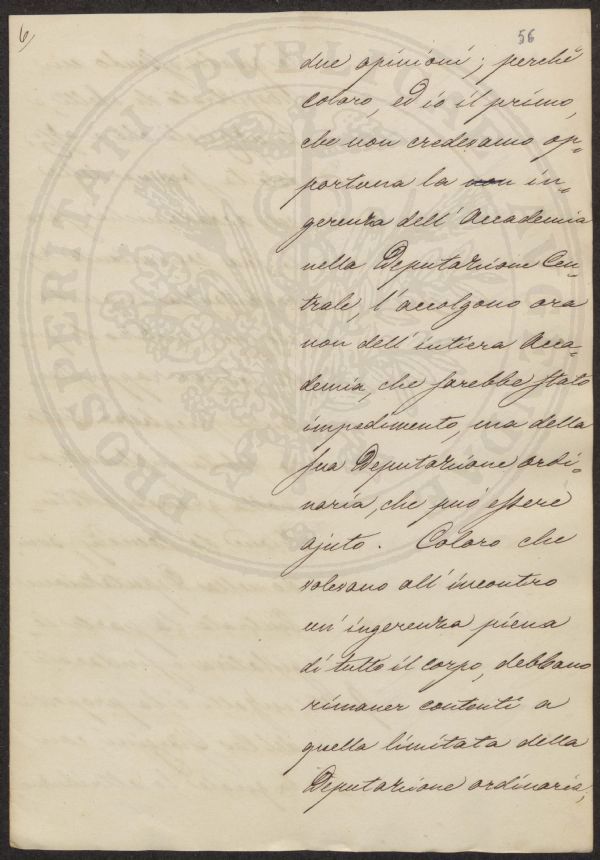 6)
56
due opinioni; perchè
coloro, ed io il primo,
che non credevamo op-
portuna la non in-
gerenza dell' Accademia
nella Deputazione Cen-
trale, l'accolgono ora
non dell' intiera Acca-
demia, che sarebbe stato
impedimento, ma della
sua Deputazione ordi-
naria, che può essere
ajuto. Coloro che
volevano all' incontro
un' ingerenza piena
di tutto il corpo, debbano
rimaner contenti a
quella limitata della
Deputazione ordinaria;
PROSPERITATI PUBLICAE AUGENDAE